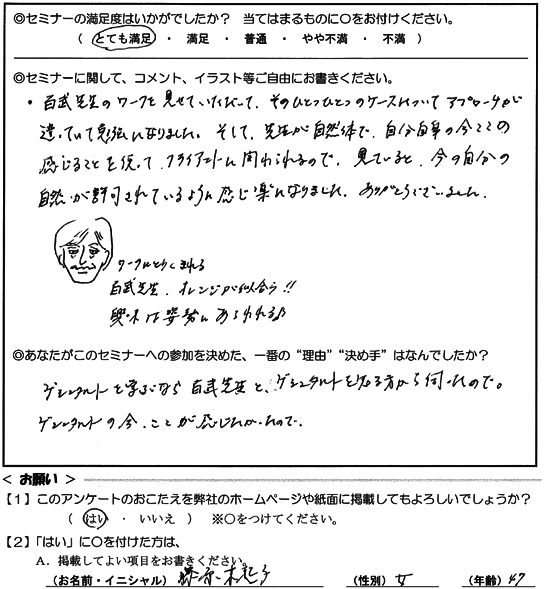 ◎セミナーの満足度はいかがでしたか？　当てはまるものに〇をお付けください。
（　とても満足　・　満足　・　普通　・　やや不満　・　不満　）
◎セミナーに関して、コメント、イラスト等ご自由にお書きください。
・百武先生のワークを見せていただいて、そのひとつひとつのケースについてアプローチが
違っていて勉強になりました。そして、先生が自然体で、自分自身の今ここの
感じることを使って、クライアントに関われるので、見ていると、今の自分の
自然が許可されているように感じ楽になりました。ありがとうございました。
ワークにとりくまれる
百武先生、オレンジが似合う!!
興味は姿勢にあらわれる♪
◎あなたがこのセミナーへの参加を決めた、一番の“理由”“決め手”はなんでしたか？
ゲシュタルトを学ぶなら百武先生と、ゲシュタルトを知る方から伺ったので。
ゲシュタルトの今、ここが感じたかったので。
＜ お願い ＞
【１】このアンケートのおこたえを弊社のホームページや紙面に掲載してもよろしいでしょうか？
（　はい　・　いいえ　）　※〇をつけてください。
【２】「はい」に〇を付けた方は、
Ａ．掲載してよい項目をお書きください。
（お名前・イニシャル）　（性別）女　（年齢）47